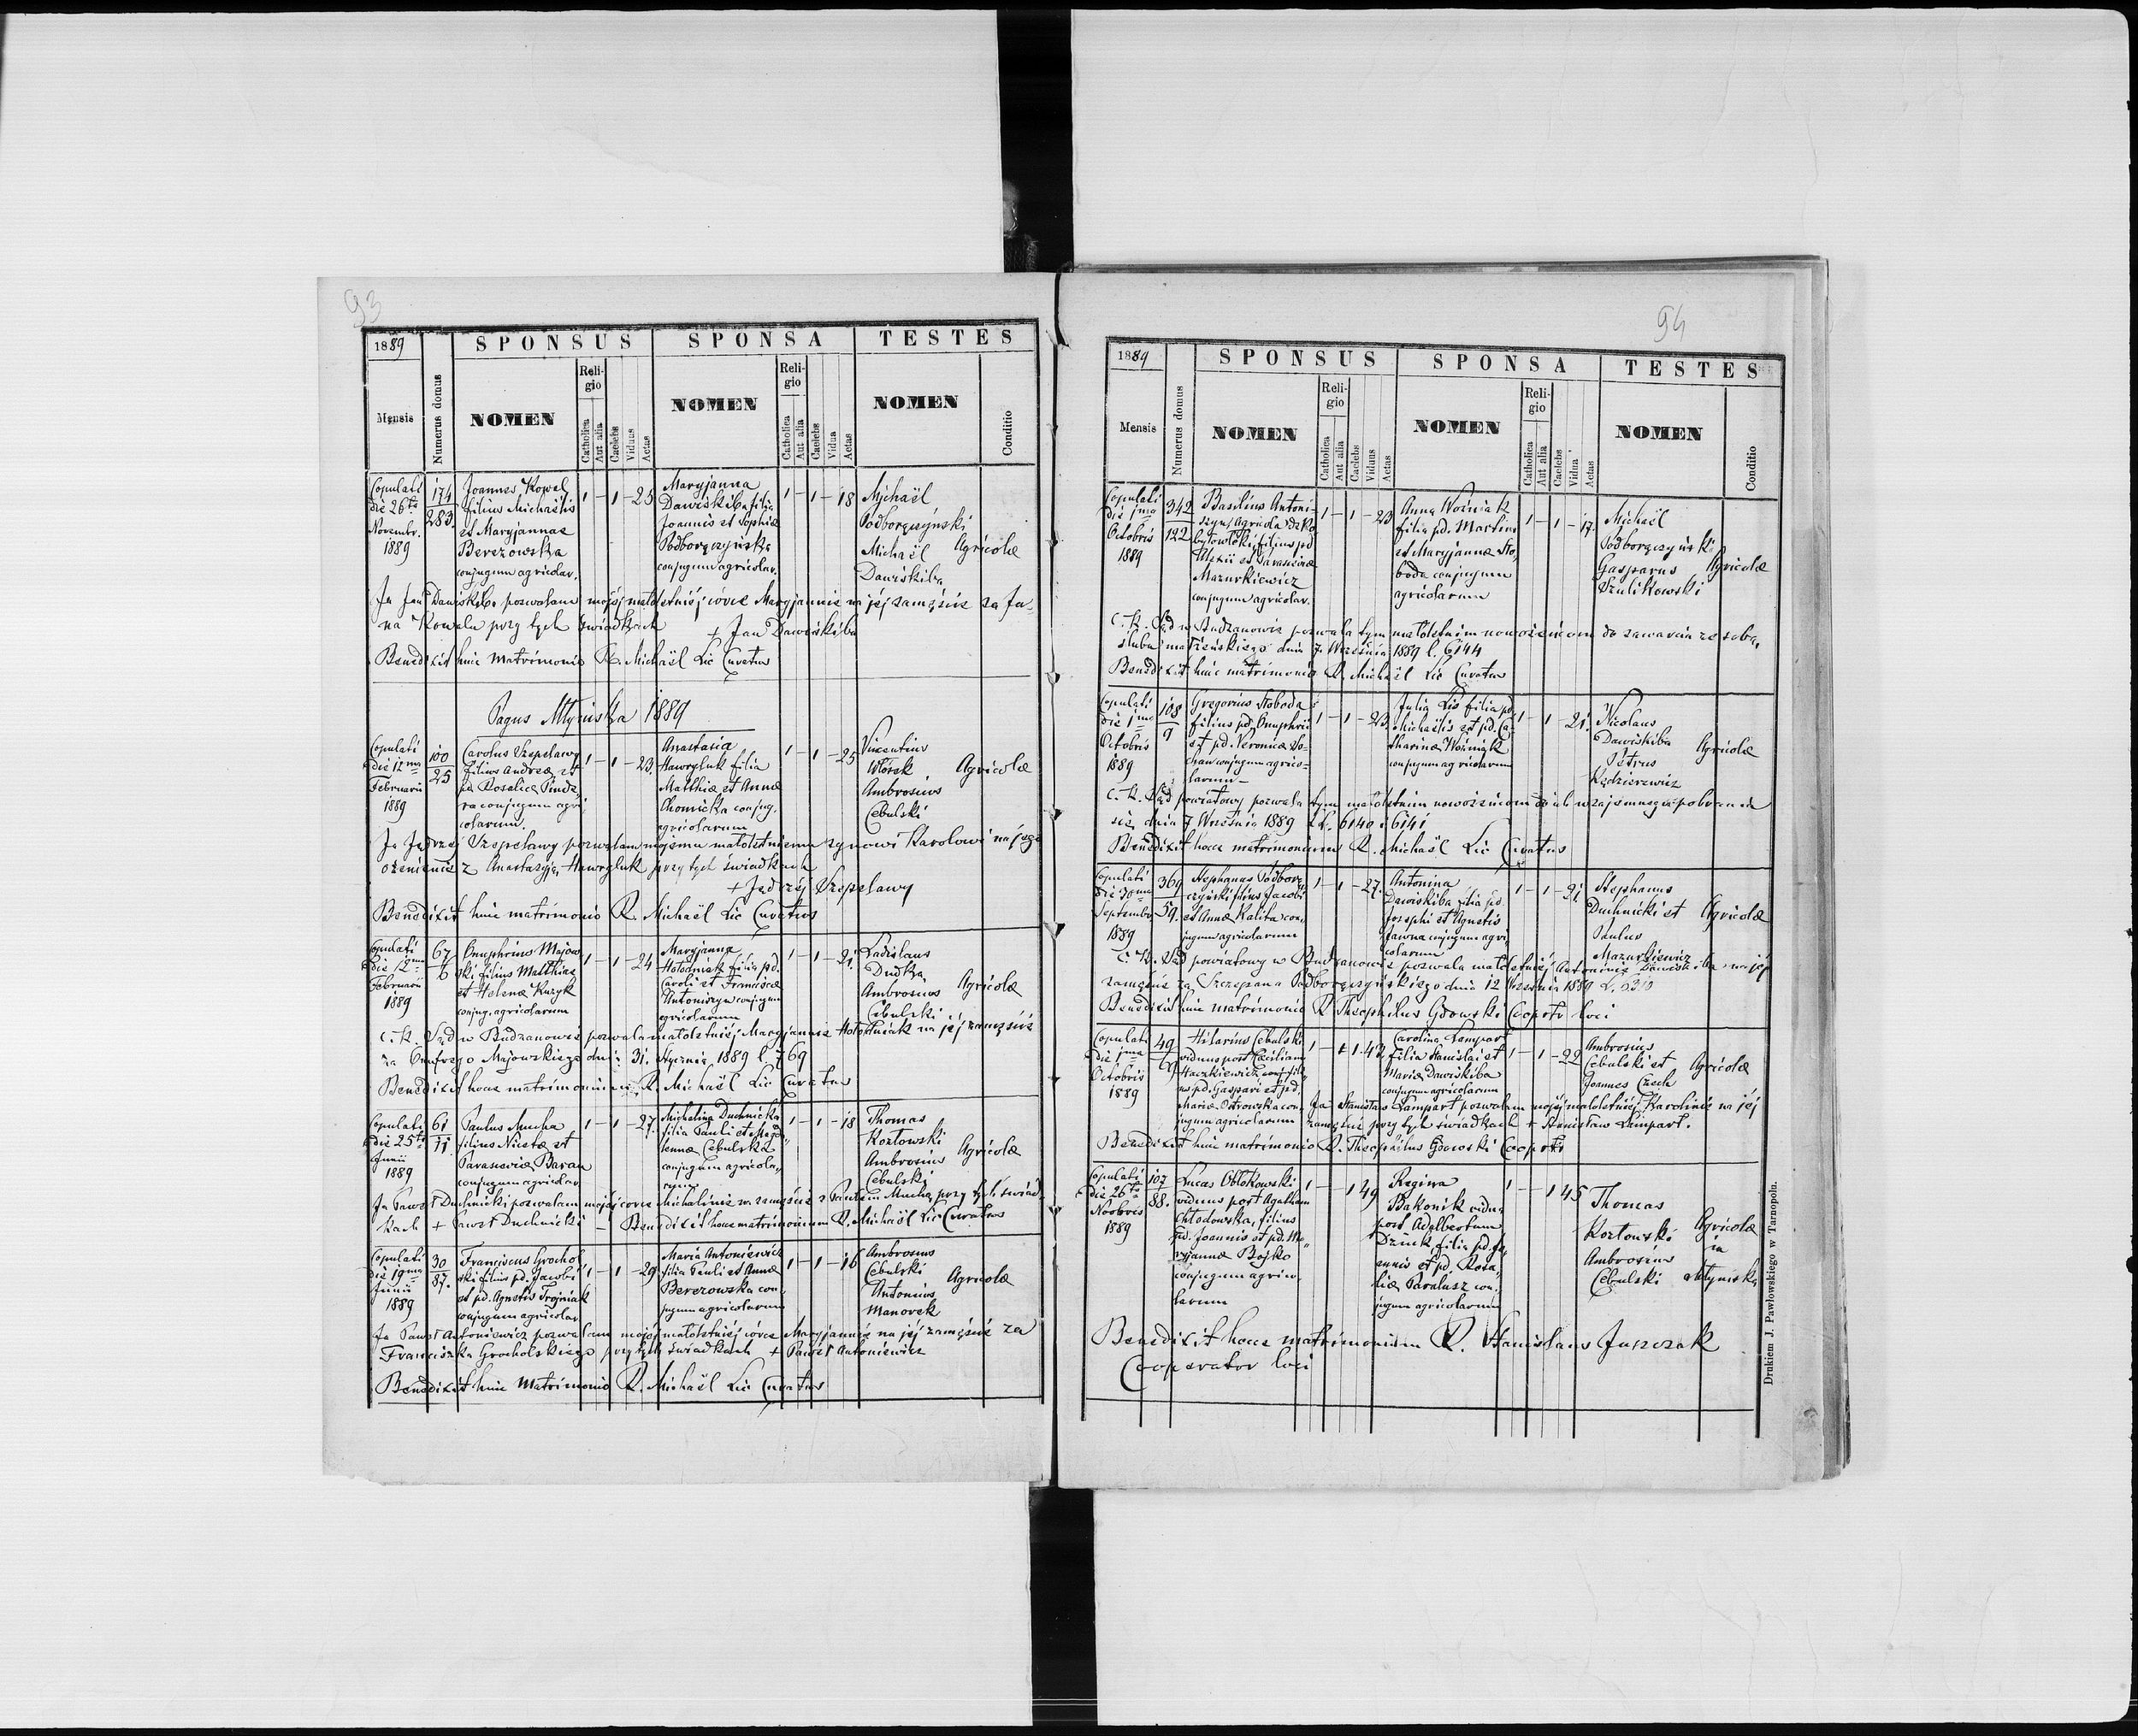 93
1889
SPONSUS
SPONSA
TESTES
Mensis
Numerus domus
NOMEN
Religio
Catholica
Aut alia
Caelebs
Viduus
Aetas
NOMEN
Religio
Catholica
Aut alia
Caelebs
Vidua
Aetas
NOMEN
Conditio
Copulati
die 26ta
Novembr.
1889
174
283.
Joannes Kowal
filius Michaëlis
et Maryjannae
Berezowska
conjugum agricolar.
1 — 1 — 25
Maryjanna
Dawiskiba filia
Joannis et Sophiæ
Podborączyńska
conjugum agricolar.
1 — 1 — 18
Michaël
Podborączyński
Michaël
Dawiskiba
Agricolæ
Ja Jan Dawiskiba pozwalam mojéj małoletniéj córce Maryjannie na jéj zamęście za Ja-
na Kowala przy tych świadkach
+ Jan Dawiskiba
Benedixit huic Matrimonio R. Michaël Lic Curatus
Pagus Młyniska 1889
Copulati
die 12ma
Februarii
1889
100
25
Carolus Szepelawy
filius Andreæ et
pd. Rosaliæ
conjugum agri-
colarum.
1 — 1 — 23.
Anastasia
Hawryluk filia
Matthiæ et Annæ
Chomicka conjug.
agricolarum
1 — 1 — 25
Vincentius
Wtórek
Ambrosius
Cebulski
Agricolæ
Ja Jędrzej Szepelawy pozwalam mojemu małoletniemu synowi Karolowi na jego
ożenienie z Anastazyją Hawryluk przy tych świadkach
+ Jędrzéj Szepelawy
Benedixit huic matrimonio R. Michaël Lic Curatus
Copulati
die 12ma
Februarii
1889
67
6
Onuphrius Majow
ski filius Matthiæ
et Helenæ Kuzyk
conjug. agricolarum
1 — 1 — 24
Maryjanna
Hołodniak filia pd.
Caroli et Franciscæ
Antoniszyn conjugum
agricolarum
1 — 1 — 21.
Ladislaus
Dudka
Ambrosius
Cebulski
Agricolæ
C. K. Sąd w Budzanowie pozwala małoletniéj Maryjannie Hołodniak na jéj zamęście
za Onufrego Majowskiego dnia 31. stycznia 1889 l. 769
Benedixit hocce matrimonium R. Michaël Lic Curatus
Copulati
die 25ta
Junii
1889
61
11
Paulus Mucha
filius Nicetæ et
Paraseviæ Baran
conjugum agricolar.
1 — 1 — 27.
Michalina Duchnicka
filia Pauli et Magda-
lenæ Cebulska
conjugum agricola-
rum
1 — 1 — 18
Thomas
Kozłowski
Ambrosius
Cebulski
Agricolæ
Ja Paweł Duchnicki pozwalam mojéj córce Michalinie na zamęście z Pawłem Mucha przy tych świad-
kach + Paweł Duchnicki — Benedixit hocce matrimonium R. Michaël Lic Curatus
Copulati
die 19ma
Junii
1889
30
87.
Franciscus Grochol
ski filius pd. Jacobi
et pd. Agnetis Trojniak
conjugum agricolar.
1 — 1 — 29
Maria Antoniewicz
filia Pauli et Annæ
Berezowska con-
jugum agricolarum
1 — 1 — 16
Ambrosius
Cebulski
Antonius
Manorek
Agricolæ
Ja Paweł Antoniewicz pozwalam mojéj małoletniéj córce Maryjannie na jéj zamęście za
Franciszka Grocholskiego przy tych świadkach + Paweł Antoniewicz
Benedixit huic Matrimonio R. Michaël Lic Curatus
94
1889
SPONSUS
SPONSA
TESTES
Mensis
Numerus domus
NOMEN
Religio
Catholica
Aut alia
Caelebs
Viduus
Aetas
NOMEN
Religio
Catholica
Aut alia
Caelebs
Vidua
Aetas
NOMEN
Conditio
Copulati
die 1ma
Octobris
1889
342
122
Basilius Antoni-
szyn, Agricola
filius pd.
Alexii et Parasceviæ
Mazurkiewicz
conjugum agricolar.
1 — 1 — 23
Anna Woźniak
filia pd. Martini
et Maryjannæ Sło-
boda conjugum
agricolarum
1 — 1 — 17.
Michaël
Podborączyński
Gasparus
Szulikowski
Agricolæ
C. K. Sąd w Budzanowie pozwala tym małoletnim nowożeńcom do zawarcia ze sobą
ślubu małżeńskiego dnia 7. Września 1889 l. 6144
Benedixit huic matrimonio R. Michaël Lic Curatus
Copulati
die 1ma
Octobris
1889
108
9
Gregorius Słoboda
filius pd. Onuphrii
et pd. Veronicæ
conjugum agrico-
larum —
1 — 1 — 23.
Julia Lis filia pd.
Michaëlis et pd. Ca-
tharinæ Woźniak
conjugum agricolarum
1 — 1 — 21.
Nicolaus
Dawiskiba
Petrus
Kędzierewicz
Agricolæ
C. K. Sąd powiatowy pozwala tym małoletnim nowożeńcom do wzajemnego pobrania
się dnia 7 Września 1889 L. 6140 i 6141
Benedixit hocce matrimonium R. Michaël Lic Curatus
Copulati
die 30ma
Septembr.
1889
369
59.
Stephanus Podborą-
czyński filius Jacobi
et Annæ Kalita con-
jugum agricolarum
1 — 1 — 27.
Antonina
Dawiskiba filia pd.
Josephi et Agnetis
Jawna conjugum agri-
colarum
1 — 1 — 21.
Stephanus
Duchnicki et
Paulus
Mazurkiewicz
Agricolæ
C. K. Sąd powiatowy w Budzanowie pozwala małoletniéj Antoninie Dawiskiba na jéj
zamęście za Szczepana Podborączyńskiego dnia 12 Września 1889
Benedixit huic matrimonio R. Theophilus Gdowski Cooptr loci
Copulati
die 1ma
Octobris
1889
49
Hilarius Cebulski
viduus post Cæciliam
Haczkiewicz conj. fili-
us pd. Gaspari et pd.
Mariæ Ostrowska con-
jugum agricolarum
Carolina Lampart
filia Stanislai et
Mariæ Dawiskiba
conjugum agricolarum
1 — 1 — 22
Ambrosius
Cebulski et
Joannes Czech
Agricolæ
Ja Stanisław Lampart pozwalam mojéj małoletniéj Karolinie na jéj
zamęście przy tych świadkach + Stanisław Lampart.
Benedixit huic matrimonio R. Theophilus Gdowski Cooptr
Copulati
die 26ta
Novbris
1889
107
88.
Lucas Obłokowski
viduus post Agatham
Chłodowska, filius
pd. Joannis et pd. Ma-
ryjannæ Bojko
conjugum agrico-
larum
1 — — 1 49
Regina
Bakonik vidua
post Adalbertum
Dziuk filia pd. Jo-
annis et pd. Rosa-
liæ Paralusz con-
jugum agricolarum
1 — — 1 45
Thomas
Kozłowski
Ambrosius
Cebulski
Agricolæ
in
Młyniska
Benedixit hocce matrimonium R. Stanislaus Juszczak
Cooperator loci
Drukiem J. Pawłowskiego w Tarnopolu.